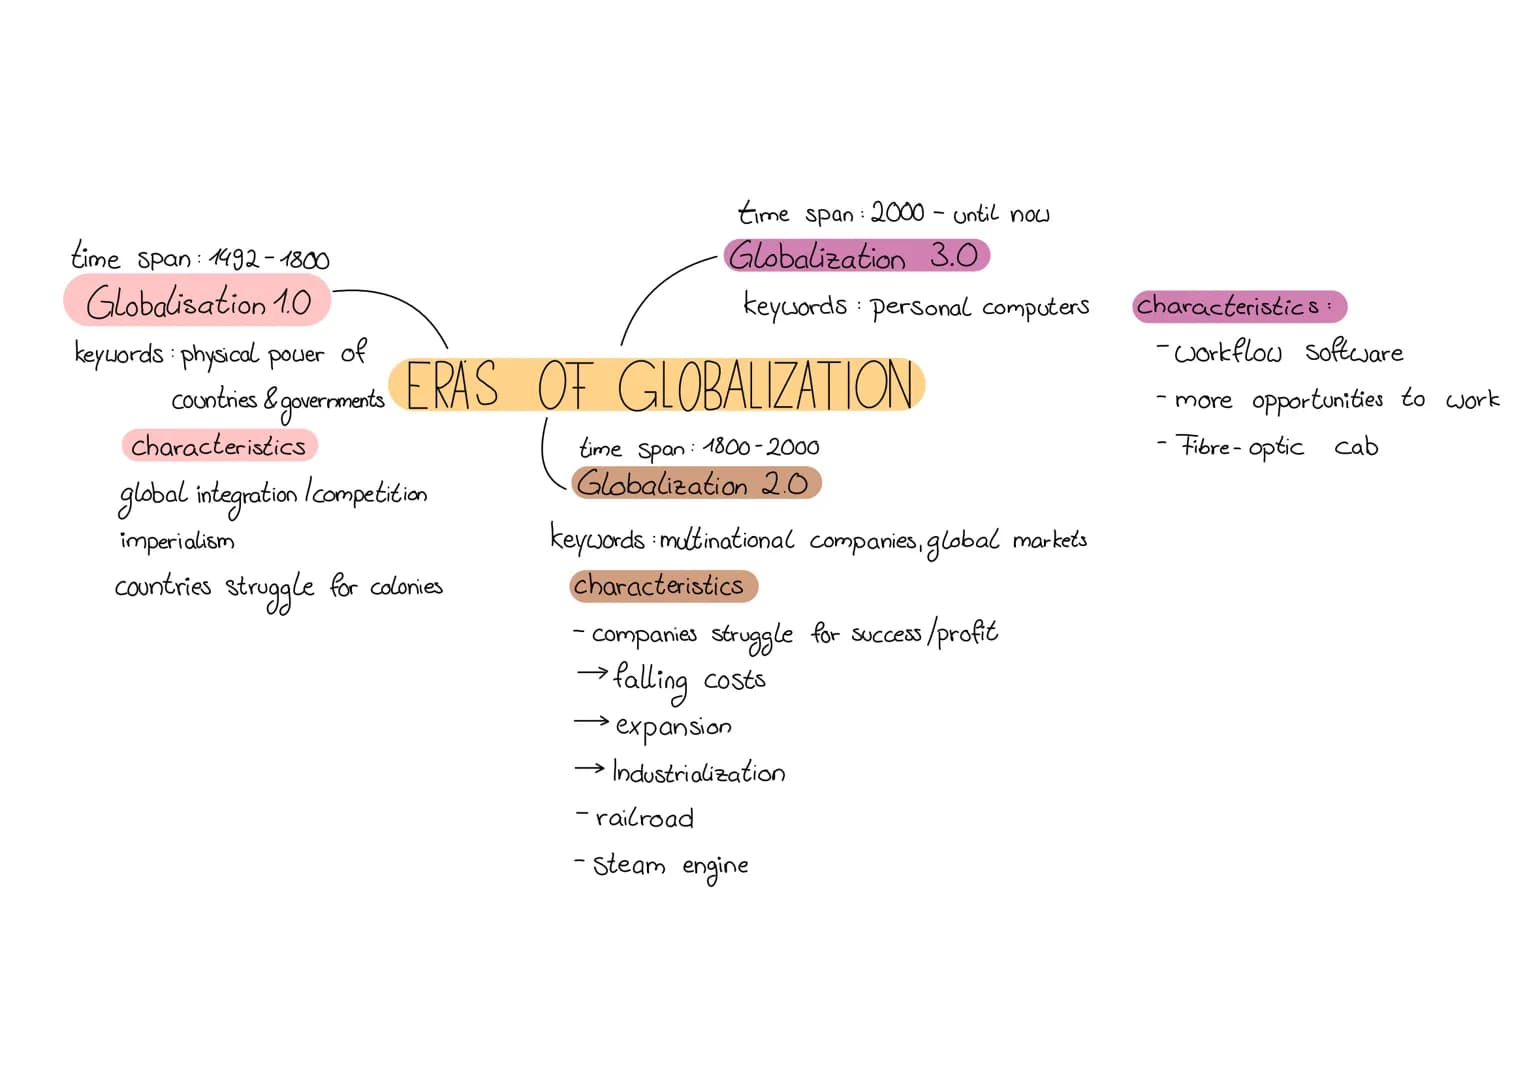 time span: 1492-1800
Globalisation 1.0
keywords: physical power of
countries & governments
characteristics
global integration / competition
imperialism
countries struggle for colonies
ERAS OF GLOBALIZATION
time span: 2000 - until now
Globalization 3.0
keywords: personal computers
characteristics:
- workflow software
- more opportunities to work
- Fibre-optic cab
time span: 1800-2000
Globalization 2.0
keywords: multinational companies, global markets
characteristics
- companies struggle for success/profit
→ falling costs
→ expansion
→ Industrialization
- railroad
- steam engine